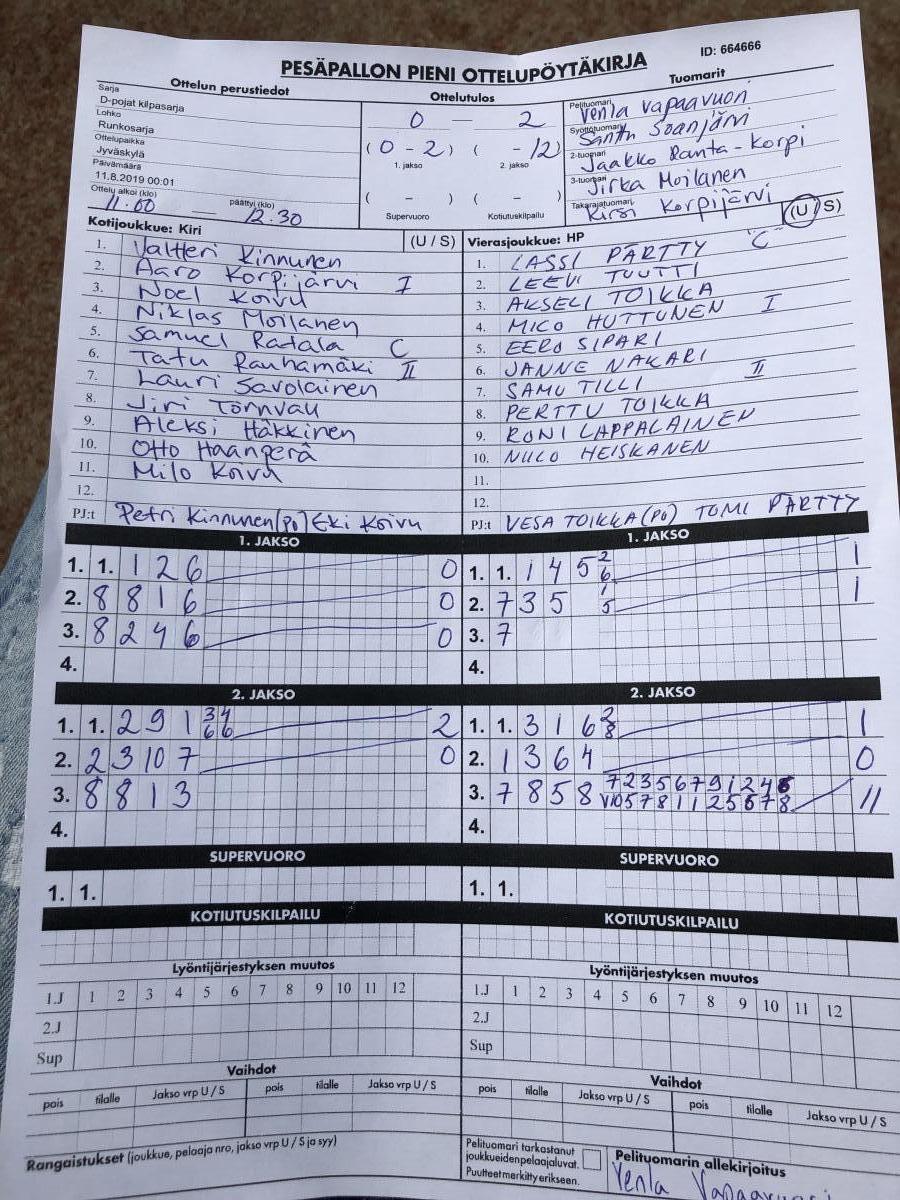 PESÄPALLON PIENI OTTELUPÖYTÄKIRJA
ID: 664666
Ottelun perustiedot
Sarja
D-pojat kilpasarja
Lohko
Runkosarja
Ottelupaikka
Jyväskylä
Päivämäärä
11.8.2019 00:01
Ottelu alkoi (klo) päättyi (klo)
11.00 — 12.30
Ottelutulos
0 — 2
(0 - 2) ( -12)
1. jakso 2. jakso
( - ) ( - )
Supervuoro Kotiutuskilpailu
Tuomarit
Pelituomari Venla Vapaavuori
Syöttötuomari Santtu Soanjärvi
2-tuomari Jaakko Ranta-Korpi
3-tuomari Jirka Moilanen
Takarajatuomari Kirsi Korpijärvi
Kotijoukkue: Kiri (U / S)
1. Valtteri Kinnunen
2. Aaro Korpijärvi I
3. Noel Koivu
4. Niklas Moilanen
5. Samuel Ratala C
6. Tatu Rauhamäki II
7. Lauri Savolainen
8. Jiri Törnvall
9. Aleksi Häkkinen
10. Otto Haanperä
11. Milo Koivu
12.
PJ:t Petri Kinnunen (PO) Eki Koivu
Vierasjoukkue: HP (U / S)
1. LASSI PÄRTTY "C"
2. LEEVI TUUTTI
3. AKSELI TOIKKA
4. MICO HUTTUNEN I
5. EERO SIPARI
6. JANNE NAKARI II
7. SAMU TILLI
8. PERTTU TOIKKA
9. RONI LAPPALAINEN
10. NIILO HEISKANEN
11.
12.
PJ:t VESA TOIKKA (PO) TOMI PÄRTTY
1. JAKSO 1. JAKSO
1. 1. 1 2 6 0 1. 1. 1 4 5 2 6 1
2. 8 8 1 6 0 2. 7 3 5 1 5 1
3. 8 2 4 6 0 3. 7
4. 4.
2. JAKSO 2. JAKSO
1. 1. 2 9 1 3 4 6 6 2 1. 1. 3 1 6 2 8 1
2. 2 3 10 7 0 2. 1 3 6 4 0
3. 8 8 1 3 3. 7 8 5 8 7 2 3 5 6 7 9 1 2 4 6 11
4. 4.
SUPERVUORO SUPERVUORO
1. 1. 1. 1.
KOTIUTUSKILPAILU KOTIUTUSKILPAILU
Lyöntijärjestyksen muutos Lyöntijärjestyksen muutos
1.J 1 2 3 4 5 6 7 8 9 10 11 12 1.J 1 2 3 4 5 6 7 8 9 10 11 12
2.J 2.J
Sup Sup
Vaihdot Vaihdot
pois tilalle Jakso vrp U / S pois tilalle Jakso vrp U / S pois tilalle Jakso vrp U / S pois tilalle Jakso vrp U / S
Rangaistukset (joukkue, pelaaja nro, jakso vrp U / S ja syy)
Pelituomari tarkastanut
joukkueidenpelaajaluvat.
Puutteet merkitty erikseen.
Pelituomarin allekirjoitus
Venla Vapaavuori